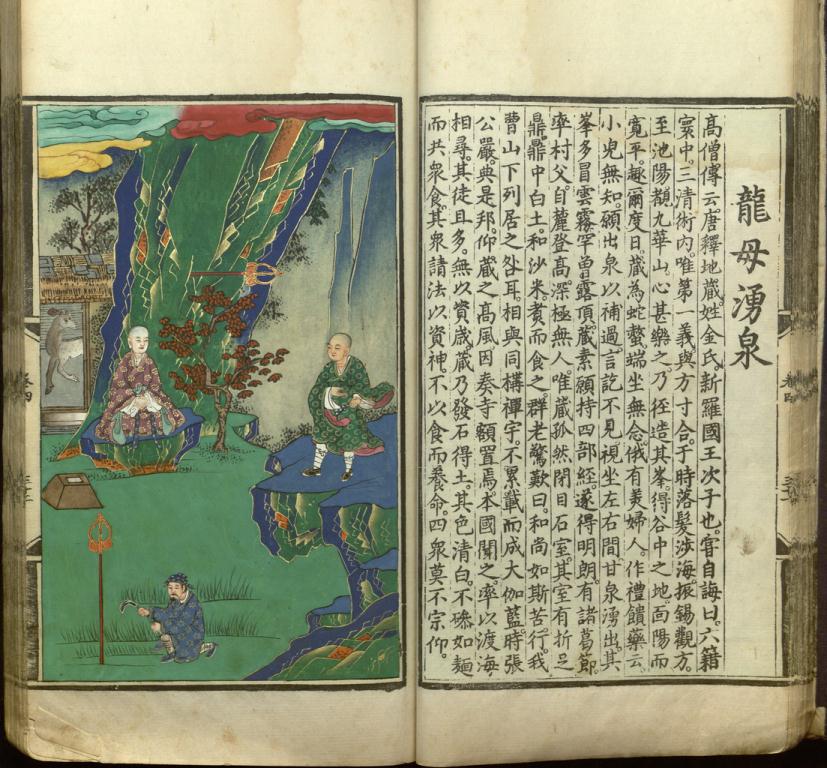 龍母湧泉
高僧傳云。唐釋地藏。姓金氏。新羅國王次子也。甞自誨曰。六籍
寰中。三清術內。唯第一義與方寸合。于時落髮涉海。振錫觀方。
至池陽。覩九華山。心甚樂之。乃徑造其峯。得谷中之地。面陽而
寬平。趣爾度日。藏為蛇螫。端坐無念。俄有美婦人。作禮饋藥云。
小兒無知。願出泉以補過。言訖不見。視坐左右間。甘泉湧出。其
峯多冒雲霧。罕曾露頂。藏素願持四部經。遂得明朗。有諸葛節。
率村父。自麓登高。深極無人。唯藏孤然閉目石室。其室有折足
鼎。鼎中白土。和沙米。煑而食之。群老驚歎曰。和尚如斯苦行。我
曹山下列居之咎耳。相與同構禪宇。不累載而成大伽藍。時張
公嚴。典是邦。仰藏之高風。因奏寺額置焉。本國聞之。率以渡海
相尋。其徒且多。無以資歲。藏乃發石得土。其色清白。不磣如麵。
而共衆食。其衆請法以資神。不以食而養命。四衆莫不宗仰。
卷四